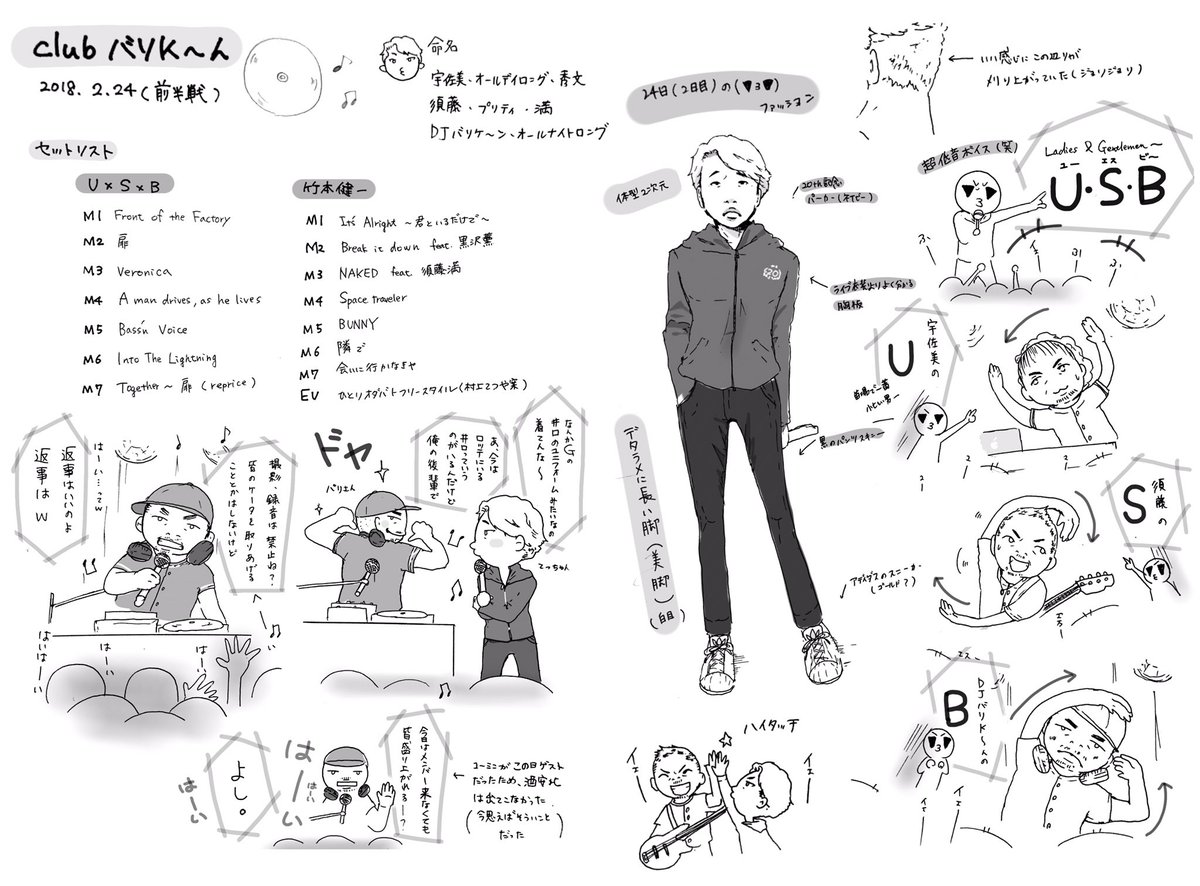 club バリK〜ん
2018. 2.24(前半戦)
命名
宇佐美・オールデイロング・秀文
須藤・プリティ・満
DJバリケ〜ン・オールナイトロング
セットリスト
U×S×B
M1 Front of the Factory
M2 扉
M3 Veronica
M4 A man drives, as he lives
M5 Bass'n Voice
M6 Into The Lightning
M7 Together〜扉(reprice)
竹本健一
M1 It's Alright 〜君といるだけで〜
M2 Break it down feat. 黒沢薫
M3 NAKED feat. 須藤満
M4 Space traveler
M5 BUNNY
M6 隣で
M7 会いに行かなきゃ
EV ひとりオダバトフリースタイル(村上てつや笑)
撮影、録音は禁止ね?
皆のケータイ取りあげる
こととかはしないけど
はーい…ってw
返事はいいのよ
返事はw
はいはーい
はーい
はーい
ドヤ
バリえん
なんかGの
井口のユニフォームみたいなの
着てんな〜
あ、今は
ロッテにいる
井口っていう
のがいるんだけど
俺の後輩で
てっちゃん
今日はメンバー来なくても
皆盛り上がれる〜?
はーい
はーい
はーい
よし。
ユーミンがこの日ゲスト
だったため、酒安北
は出てこなかった
(今思えばそういうこと
だった)
24日(2日目)の(▼3▼)
ファッション
体型2次元
20th記念
パーカー(ネイビー)
ライブ衣装よりよく分かる
胸板
黒のパンツスキニー
デタラメに長い脚(美脚)
(自由)
アディダスのスニーカー
(ゴールド?)
いい感じにこの辺りが
メリ上がっていた(ジョリジョリ)
超低音ボイス(笑)
Ladies & Gentlemen〜
ユー エス ビ〜
U・S・B
宇佐美の
U
首謀で一番
小さい男ー
須藤の
S
エスー
DJバリK〜んの
B
ハイタッチ
イエー
イエー